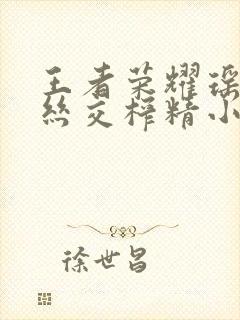 王者荣耀瑶
丝交榨精小
徐世昌